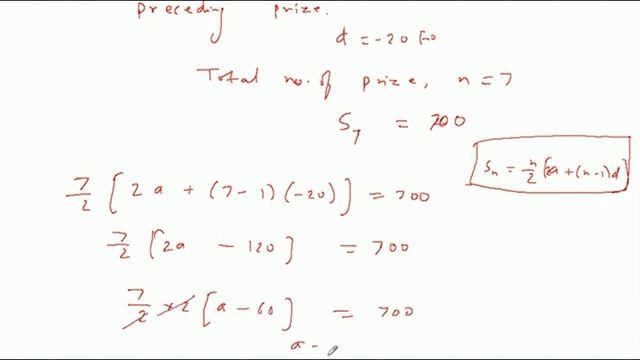 preceding prize.
d = -20
Total no. of prize, n = 7
S₇ = 700
Sₙ = n/2 [2a + (n-1)d]
7/2 [2a + (7-1)(-20)] = 700
7/2 [2a - 120] = 700
7/2 × 2 [a - 60] = 700
a -